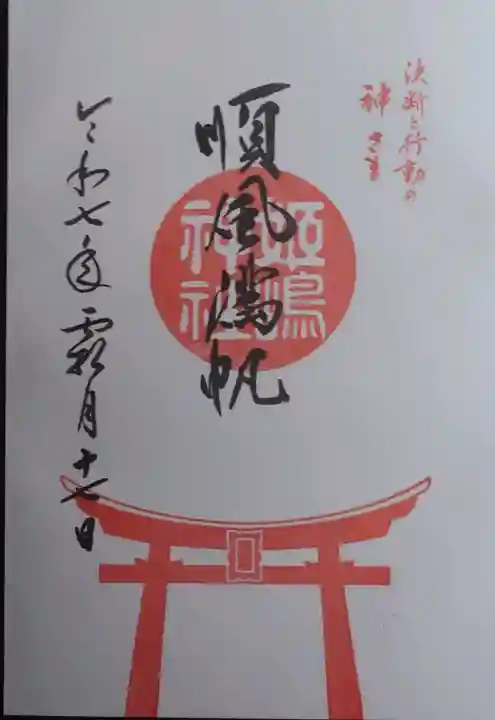 決断と行動の
神さま
順風満帆
姫嶋
神社
令和七年霜月十七日